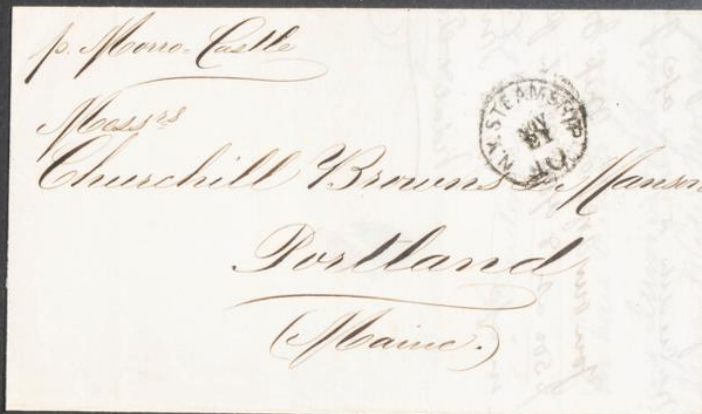 p. Morro-Castle
Messrs
Churchill Browns & Manson
Portland
(Maine.)
N.Y. STEAMSHIP
NOV
21
10